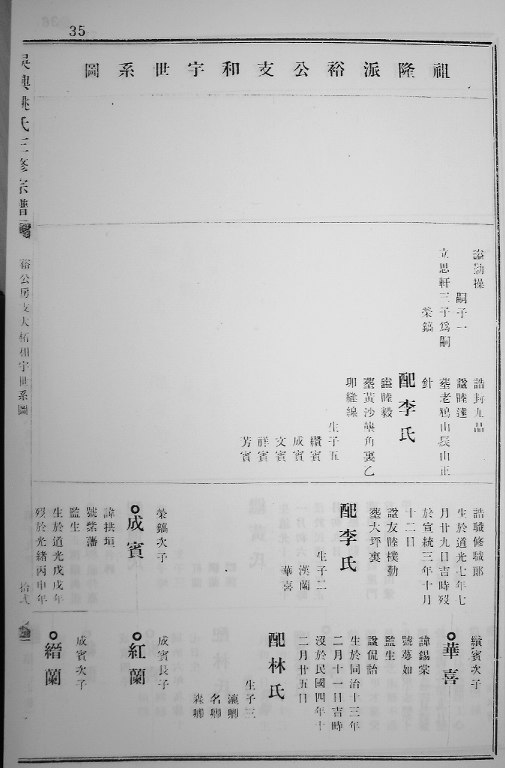 35
祖隆派裕公支和宇世系圖
吳興姚氏三修宗譜
裕公房支大
和宇世系圖
謚勤操
嗣子一
立思軒三子為嗣
榮鎬
誥封九品
謚睦達
葬老鴉山長山正
針
配李氏
謚睦毅
葬黃沙壠角裏乙
卯縫線
生子五
纘賓
成賓
文賓
祥賓
芳賓
誥職修城郎
生於道光七年七
月廿九日吉時歿
於宣統三年十月
十二日
謚友睦樸勤
葬大坪裏
配李氏
生子二
漢蘭
華喜
榮鎬次子
成賓
諱扶垣
號紫藩
監生
生於道光戊戌年
歿於光緒丙申年
纘賓次子
華喜
諱錫棠
號蕚如
監生
謚侃怡
生於同治十三年
二月十一日吉時
沒於民國四年十
二月廿五日
配林氏
生子三
瀛卿
名卿
森卿
成賓長子
紅蘭
成賓次子
縉蘭